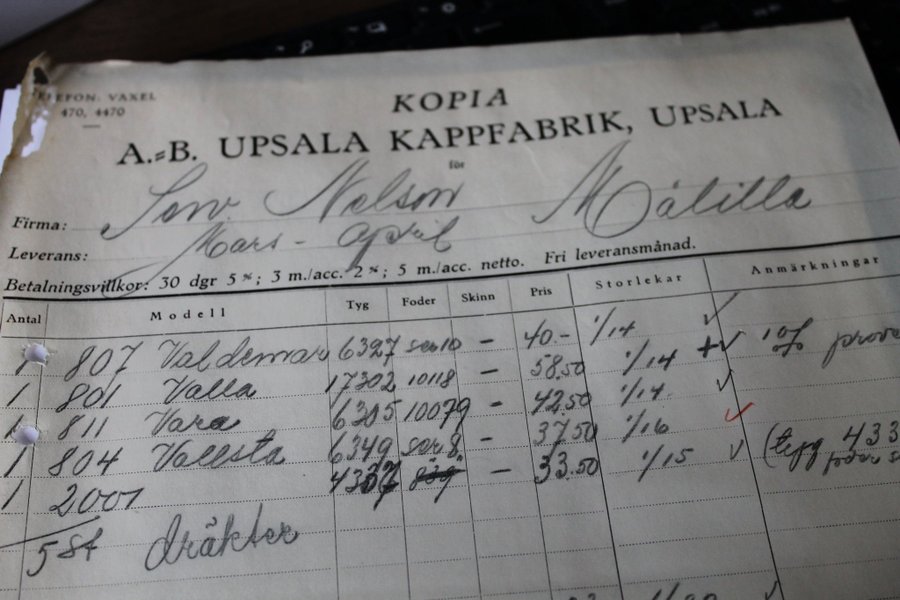 TELEFON. VÄXEL
470, 4470
KOPIA
A.=B. UPSALA KAPPFABRIK, UPSALA
för
Firma: Nelson Målilla
Leverans: Mars - April
Betalningsvillkor: 30 dgr 5 %; 3 m./acc. 2 %; 5 m./acc. netto. Fri leveransmånad.
Antal Modell Tyg Foder Skinn Pris Storlekar Anmärkningar
1 807 Valdemar 6327 - 40.- 1/14
1 801 Valla 17302 10118 - 58.50 1/14
1 811 Vara 6305 10079 - 42.50 1/14
1 804 Vallsta 6349 - 37.50 1/16
1 2001 - 33.50 1/15 (tyg 433
5 st dräkter